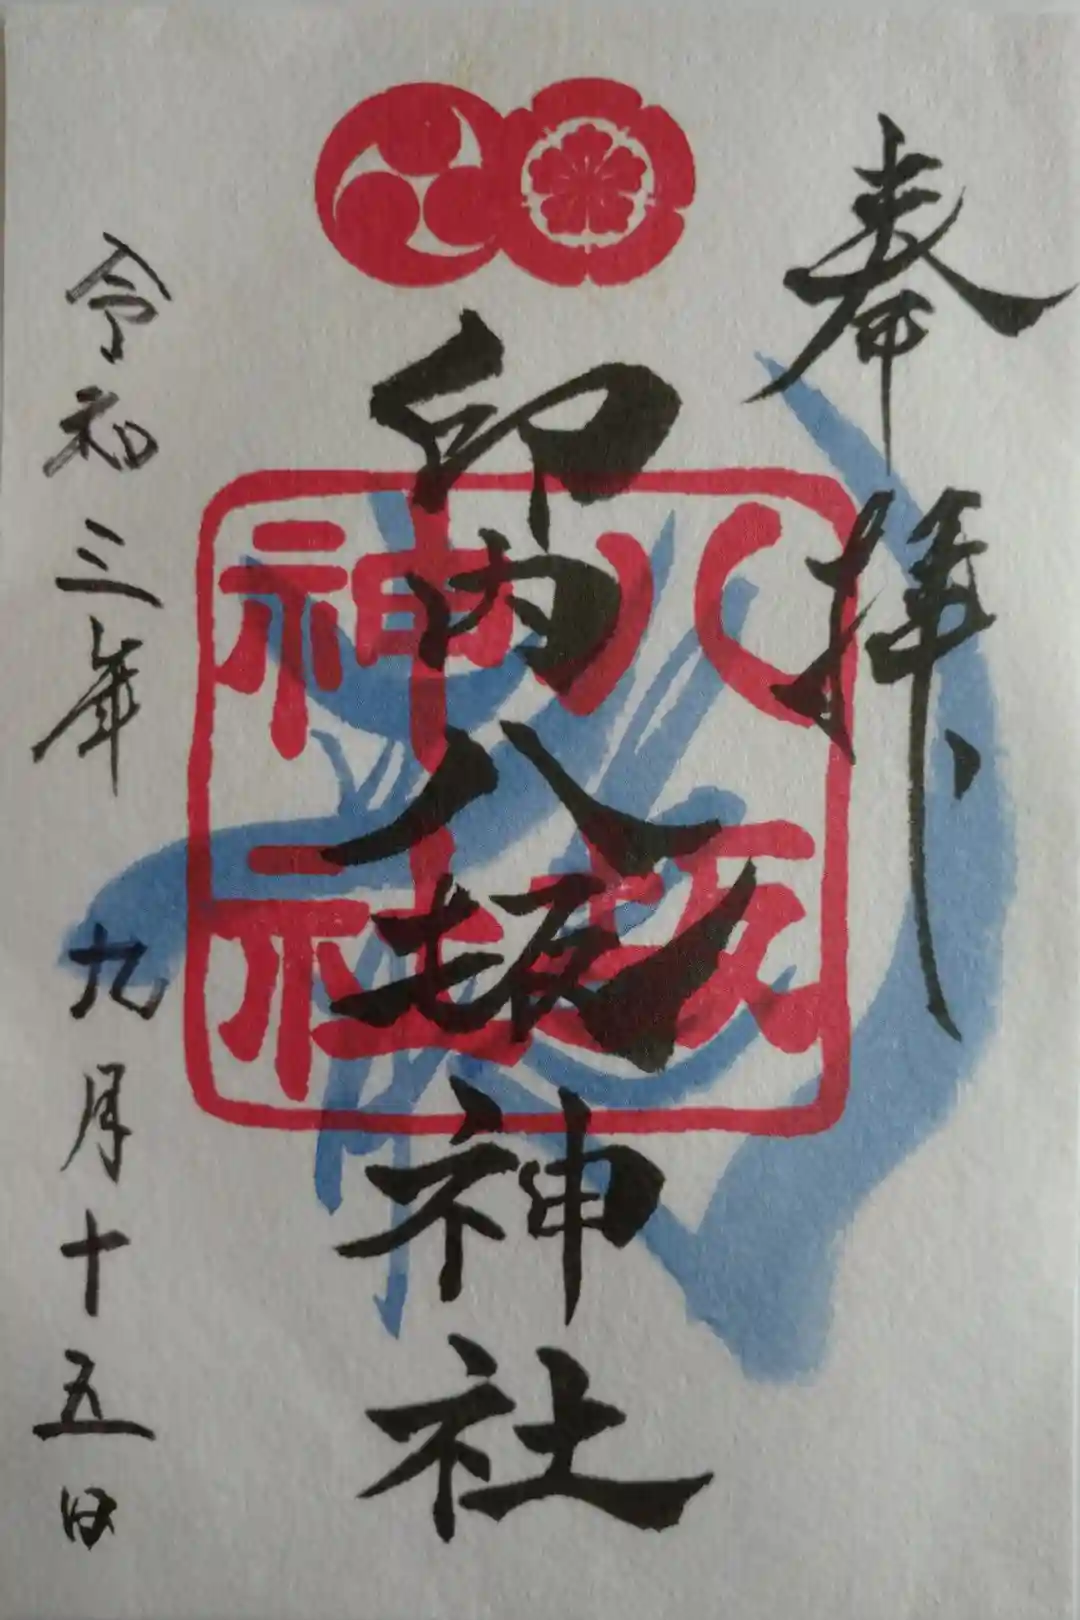 奉拝
八坂
神社
印内八坂神社
令和三年 九月十五日